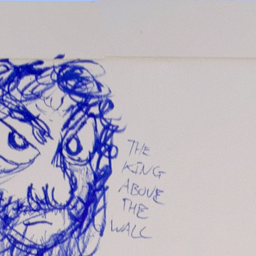 THE
KING
ABOVE
THE
WALL